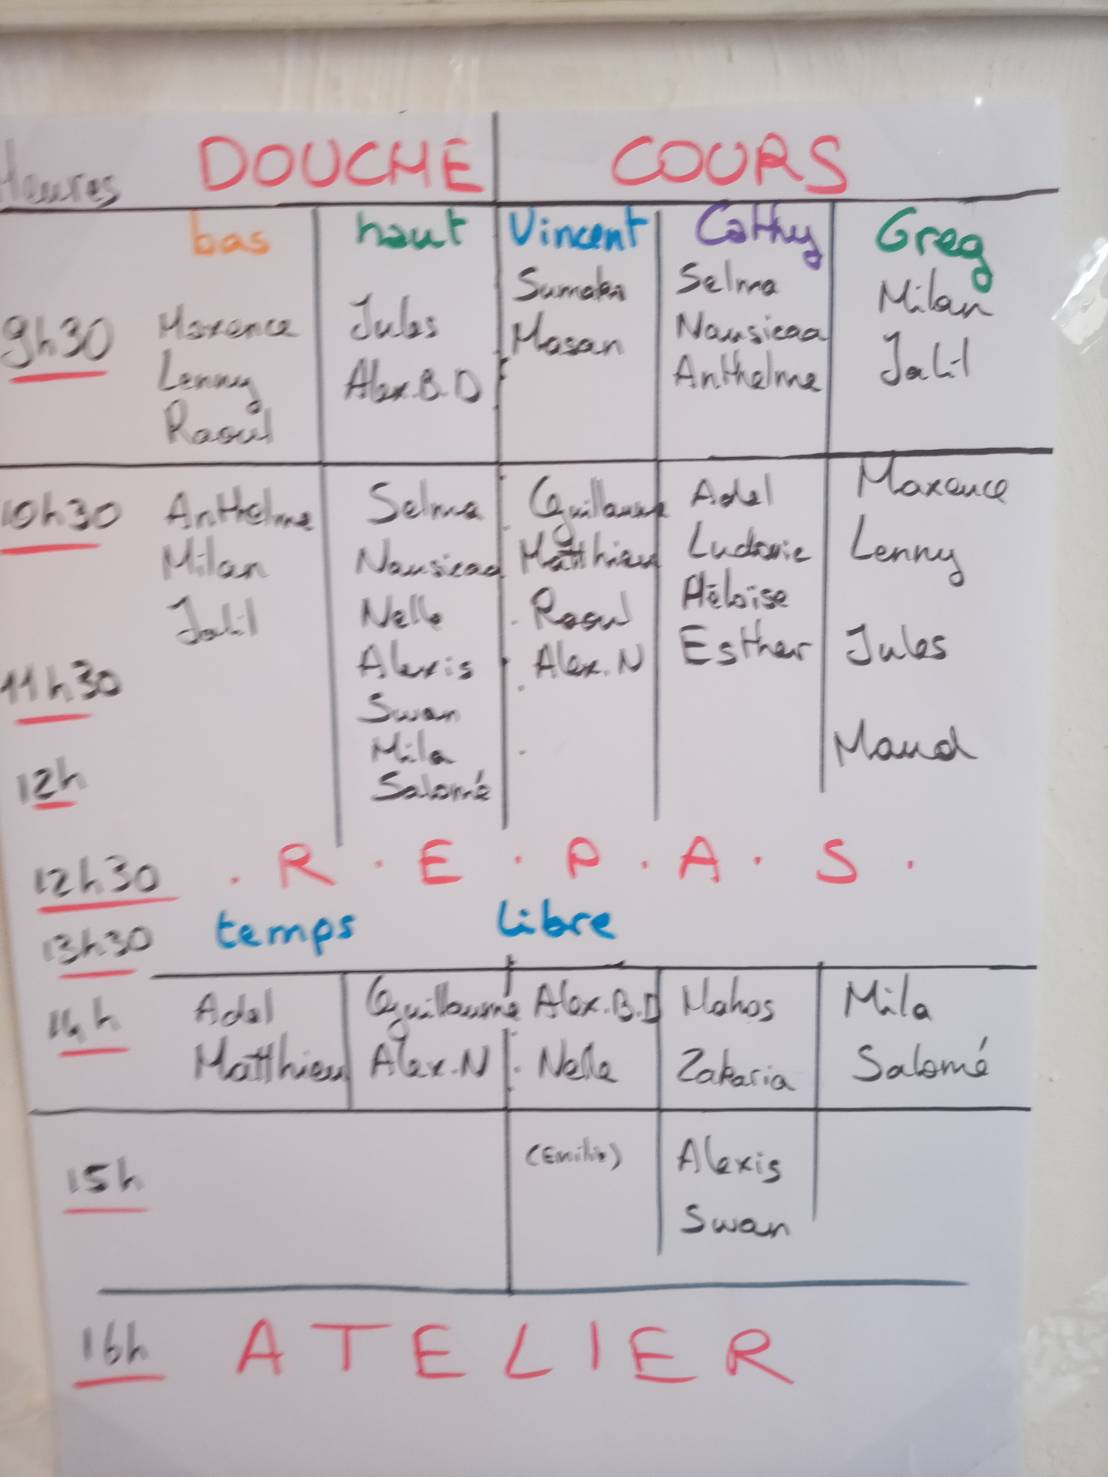 Heures DOUCHE COURS
bas haut Vincent Cathy Greg
9h30
Maxence
Lenny
Raoul
Jules
Alex.B.D
Hasan
Selma
Nausicaa
Anthelme
Milan
Jalil
10h30
Anthelme
Milan
Jalil
Selma
Nausicaa
Nelle
Alexis
Swan
Mila
Salomé
Guillaume
Matthieu
Raoul
Alex.N
Adel
Ludovic
Héloïse
Esther
Maxence
Lenny
Jules
Maud
11h30
12h
12h30 . R . E . P . A . S .
13h30 temps libre
14h
Adel
Matthieu
Guillaume
Alex.N
Alex.B.D
Nelle
Zakaria
Mila
Salomé
15h
Alexis
Swan
16h ATELIER